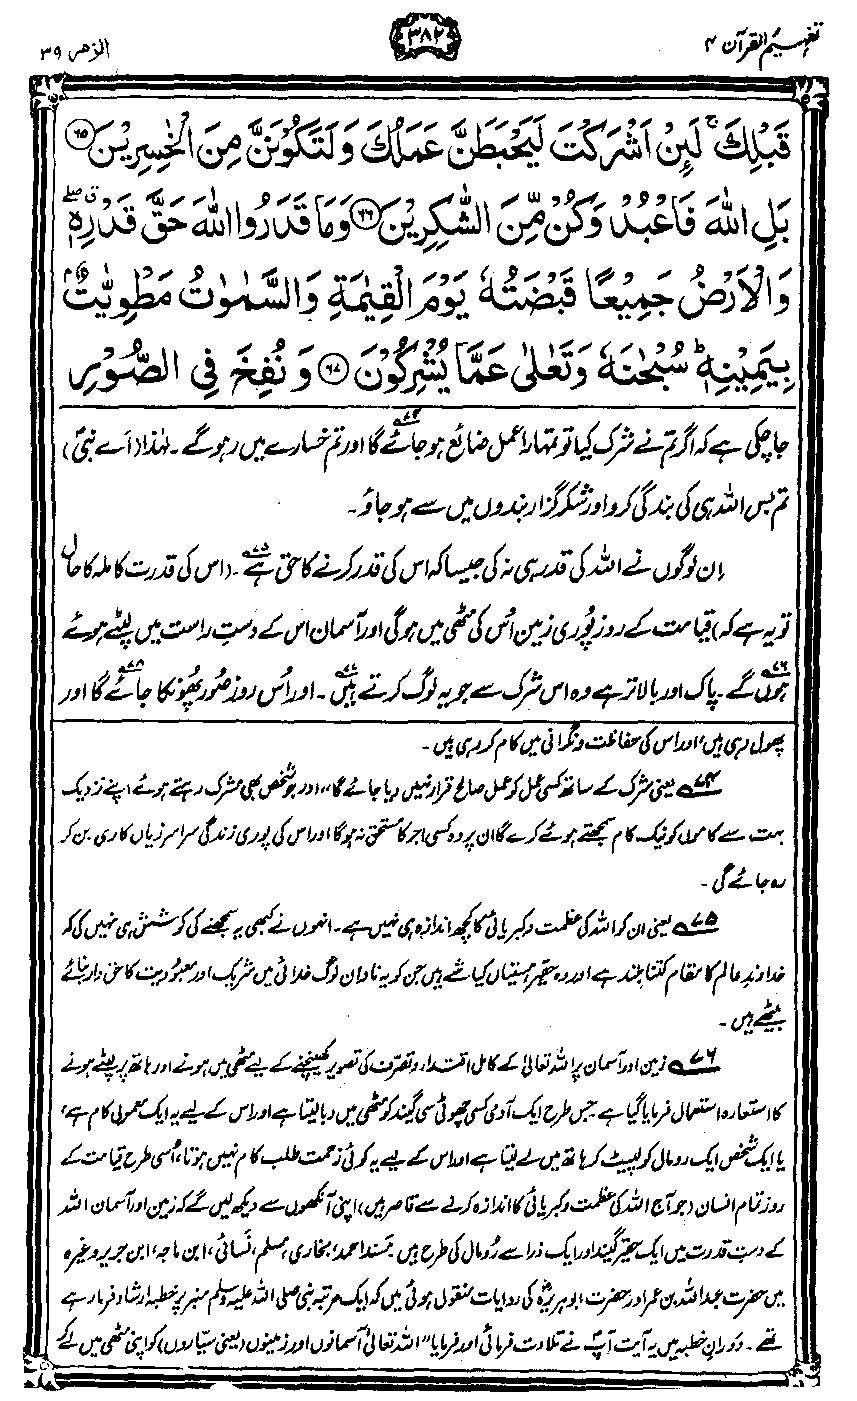 تفہیم القرآن ۴
۳۸۲
الزمر ۳۹
قَبۡلِكَ ۚ لَئِنۡ اَشۡرَكۡتَ لَيَحۡبَطَنَّ عَمَلُكَ وَلَتَكُوۡنَنَّ مِنَ الۡخٰسِرِيۡنَ ﴿۶۵﴾
بَلِ اللّٰهَ فَاعۡبُدۡ وَكُنۡ مِّنَ الشّٰكِرِيۡنَ ﴿۶۶﴾ وَمَا قَدَرُوا اللّٰهَ حَقَّ قَدۡرِهٖ ۖ
وَالۡاَرۡضُ جَمِيۡعًا قَبۡضَتُهٗ يَوۡمَ الۡقِيٰمَةِ وَالسَّمٰوٰتُ مَطۡوِيّٰتٌۢ
بِيَمِيۡنِهٖ ؕ سُبۡحٰنَهٗ وَتَعٰلٰى عَمَّا يُشۡرِكُوۡنَ ﴿۶۷﴾ وَنُفِخَ فِى الصُّوۡرِ
جا چکی ہے کہ اگر تم نے شرک کیا تو تمہارا عمل ضائع ہو جائے گا۷۴ اور تم خسارے میں رہو گے۔ لہٰذا (اے نبیؐ)
تم بس اللہ ہی کی بندگی کرو اور شکر گزار بندوں میں سے ہو جاؤ۔
اِن لوگوں نے اللہ کی قدر ہی نہ کی جیسا کہ اس کی قدر کرنے کا حق ہے۷۵۔ (اس کی قدرتِ کاملہ کا حال
تو یہ ہے کہ) قیامت کے روز پُوری زمین اُس کی مٹھی میں ہوگی اور آسمان اس کے دستِ راست میں لپٹے ہوئے
ہوں گے۷۶۔ پاک اور بالاتر ہے وہ اس شرک سے جو یہ لوگ کرتے ہیں۷۷۔ اور اُس روز صُور پھُونکا جائے گا۷۸ اور
پھول رہی ہیں، اور اس کی حفاظت و نگرانی میں کام کر رہی ہیں۔
۷۴ یعنی شرک کے ساتھ کسی عمل کو عملِ صالح قرار نہیں دیا جائے گا، اور جو شخص بھی مشرک رہتے ہوئے اپنے نزدیک
بہت سے کاموں کو نیک کام سمجھتے ہوئے کرے گا ان پر وہ کسی اجر کا مستحق نہ ہوگا اور اس کی پوری زندگی سراسر زیاں کاری بن کر
رہ جائے گی۔
۷۵ یعنی ان کو اللہ کی عظمت و کبریائی کا کچھ اندازہ ہی نہیں ہے۔ انہوں نے کبھی یہ سمجھنے کی کوشش ہی نہیں کی کہ
خداوندِ عالم کا مقام کتنا بلند ہے اور وہ حقیر ہستیاں کیا شے ہیں جن کو یہ نادان لوگ خدائی میں شریک اور معبودیت کا حق دار بنائے
بیٹھے ہیں۔
۷۶ زمین اور آسمان پر اللہ تعالیٰ کے کامل اقتدار و تصرف کی تصویر کھینچنے کے لیے مٹھی میں ہونے اور ہاتھ پر لپٹے ہونے
کا استعارہ استعمال فرمایا گیا ہے۔ جس طرح ایک آدمی کسی چھوٹی سی گیند کو مٹھی میں دبا لیتا ہے اور اس کے لیے یہ ایک معمولی کام ہے،
یا ایک شخص ایک رومال کو لپیٹ کر ہاتھ میں لے لیتا ہے اور اس کے لیے یہ کوئی زحمت طلب کام نہیں ہوتا، اُسی طرح قیامت کے
روز تمام انسان (جو آج اللہ کی عظمت و کبریائی کا اندازہ کرنے سے قاصر ہیں) اپنی آنکھوں سے دیکھ لیں گے کہ زمین اور آسمان اللہ
کے دستِ قدرت میں ایک حقیر گیند اور ایک ذرا سے رُومال کی طرح ہیں۔ مُسند احمد، بخاری، مسلم، نَسائی، ابن ماجہ، ابن جریر وغیرہ
میں حضرت عبداللہ بن عمر اور حضرت ابو ہریرہؓ کی روایات منقول ہوئی ہیں کہ ایک مرتبہ نبی صلی اللہ علیہ وسلم منبر پر خطبہ ارشاد فرما رہے
تھے۔ دَورانِ خطبہ میں یہ آیت آپؐ نے تلاوت فرمائی اور فرمایا "اللہ تعالیٰ آسمانوں اور زمینوں (یعنی سیّاروں) کو اپنی مٹھی میں لے کے